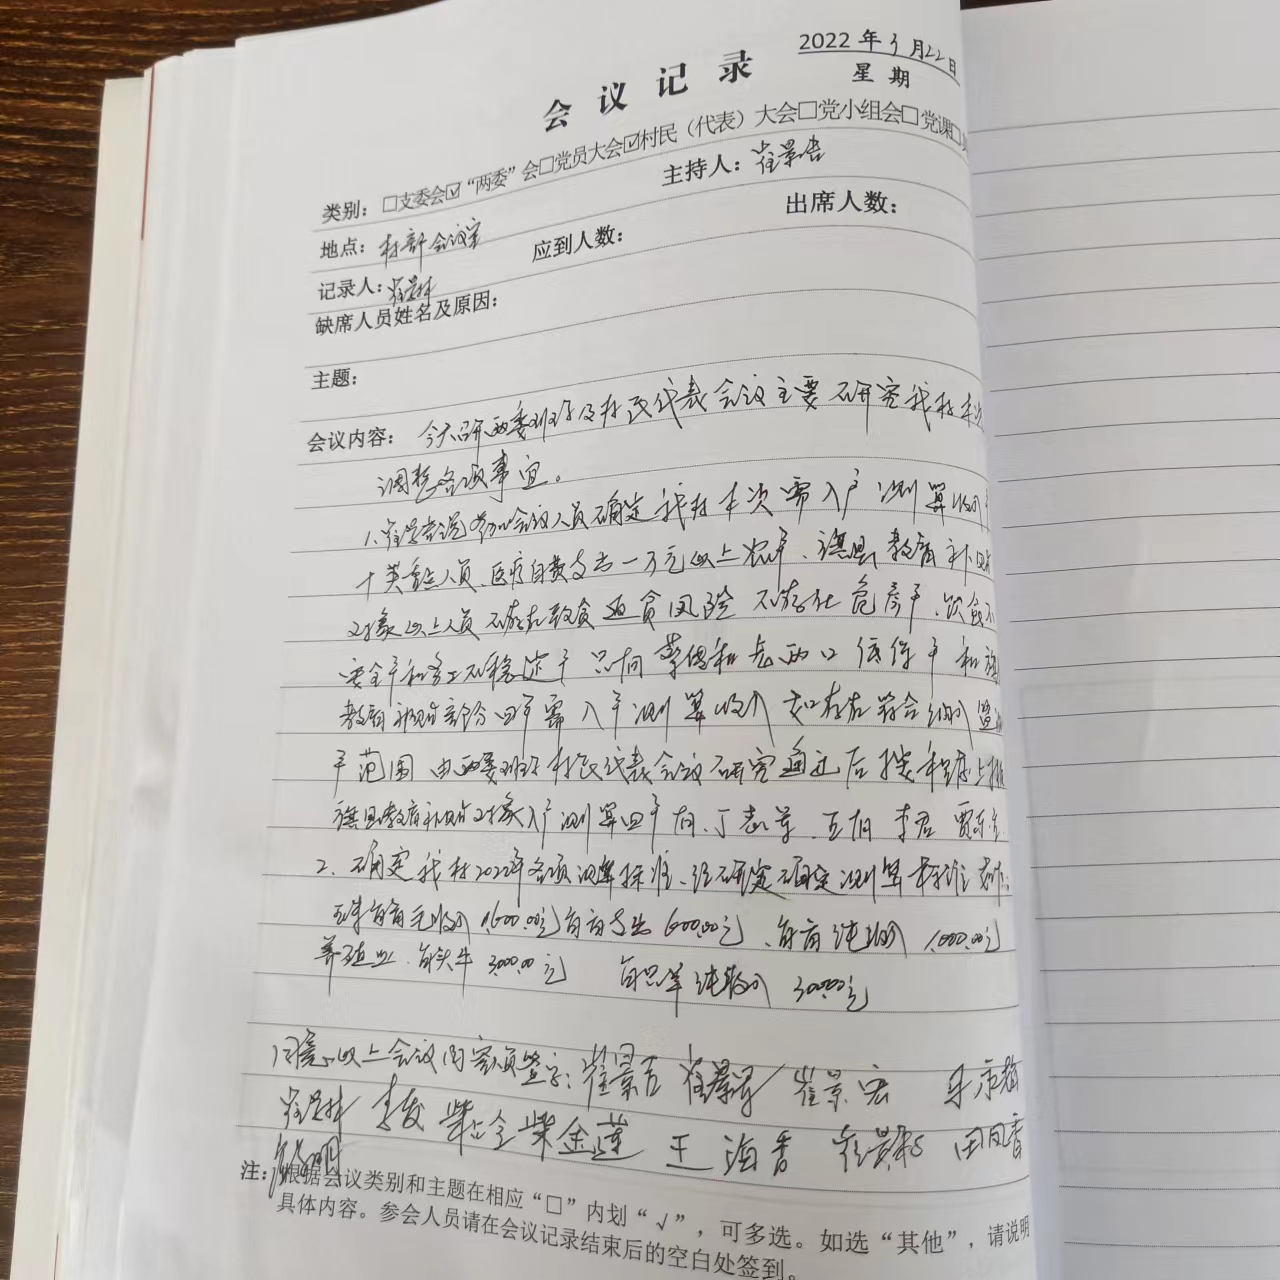 2022年3月22日
星期
会议记录
类别：□支委会☑“两委”会□党员大会☑村民（代表）大会□党小组会□党课□
地点：村部会议室 主持人：崔景吉
记录人：崔景林 应到人数： 出席人数：
缺席人员姓名及原因：
主题：
会议内容：今天召开两委班子及村民代表会议主要研究我村本次
调整各项事宜。
1、崔景吉说参加会议人员确定我村本次需入户测算收入户
十类重点人员、医疗自费支出一万元以上农户、旗县教育补贴
对象以上人员不存在致贫返贫风险不存在危房户、饮食不
安全户和务工不稳定户只有 两口低保户和旗
教育补贴部分四户需入户测算收入如存在符合纳入监测
户范围由两委班子村民代表会议研究通过后按程序上报
旗县教育补贴对象入户测算四户有、丁志军、 李君
2、确定我村2022年各项测算标准、经研究确定测算标准如下：
玉米每亩毛收入1,600.00元每亩支出600.00元、每亩纯收入1,000.00元
养殖业、每头牛3,000.00元 每只羊纯收入300.00元
同意以上会议内容请签字：崔景吉 崔景军 崔景宏
崔景林 李发 柴占全 柴金莲 王海香 田凤香
注：根据会议类别和主题在相应“□”内划“√”，可多选。如选“其他”，请说明
具体内容。参会人员请在会议记录结束后的空白处签到。